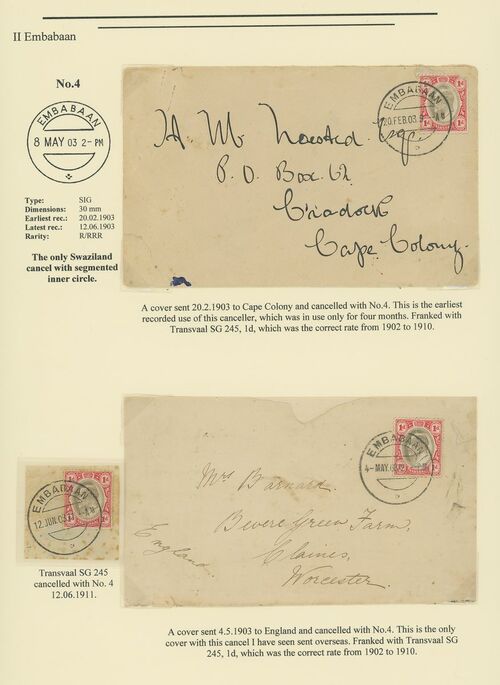 II Embabaan
No.4
EMBABAAN
8 MAY 03 2-PM
Type: SIG
Dimensions: 30 mm
Earliest rec.: 20.02.1903
Latest rec.: 12.06.1903
Rarity: R/RRR
The only Swaziland
cancel with segmented
inner circle.
EMBABAAN
20.FEB.03
1d 1d
P.O. Box 62
Cradock
Cape Colony.
A cover sent 20.2.1903 to Cape Colony and cancelled with No.4. This is the earliest
recorded use of this canceller, which was in use only for four months. Franked with
Transvaal SG 245, 1d, which was the correct rate from 1902 to 1910.
EMBABAAN
4-MAY.03
1d 1d
Mrs Barnard
Bevere Green Farm,
Claines,
Worcester.
England.
EMBABAAN
12.JUN.03
Transvaal SG 245
cancelled with No. 4
12.06.1911.
A cover sent 4.5.1903 to England and cancelled with No.4. This is the only
cover with this cancel I have seen sent overseas. Franked with Transvaal SG
245, 1d, which was the correct rate from 1902 to 1910.